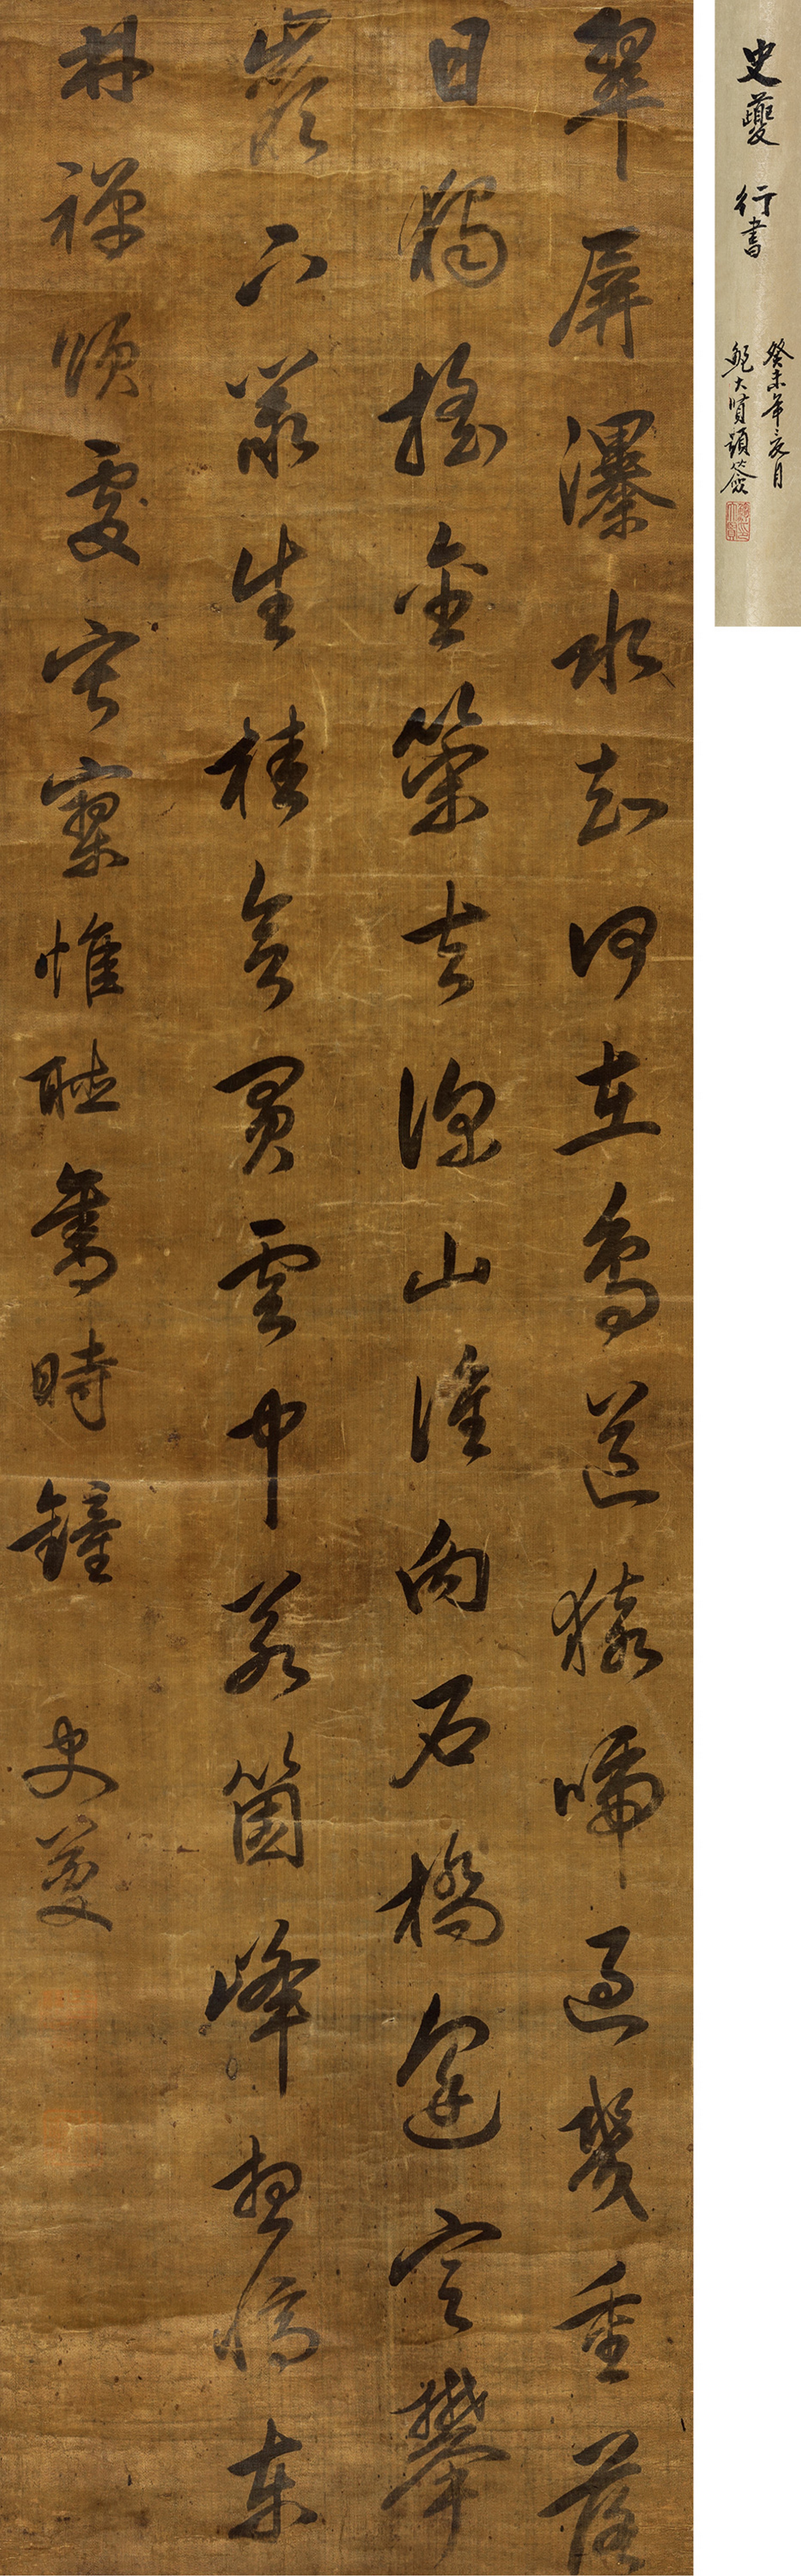 翠屏瀑水知何在鳥道猿啼過幾重落
日獨搖金策去深山誰向石橋逢定攀
巖下叢生桂欲買雲中若箇峰想憶東
林禪頌處寂寥惟聽舊時鐘 史夔
史夔 行書
癸未年亥月
鮑大賢題簽